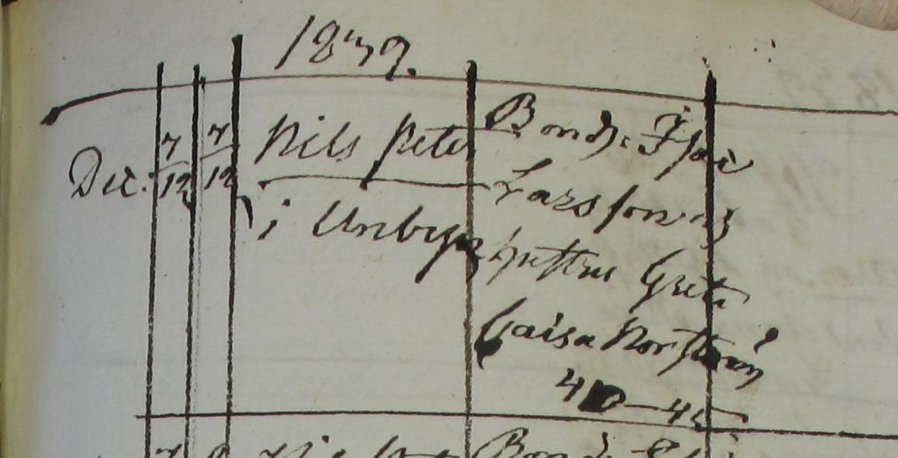 1839.
Dec. 7/12 7/12 Nils Peter
i Unbyn
Bond. Isac
Larssons
hustru Greta
Caisa Norström
40-45
Bond.